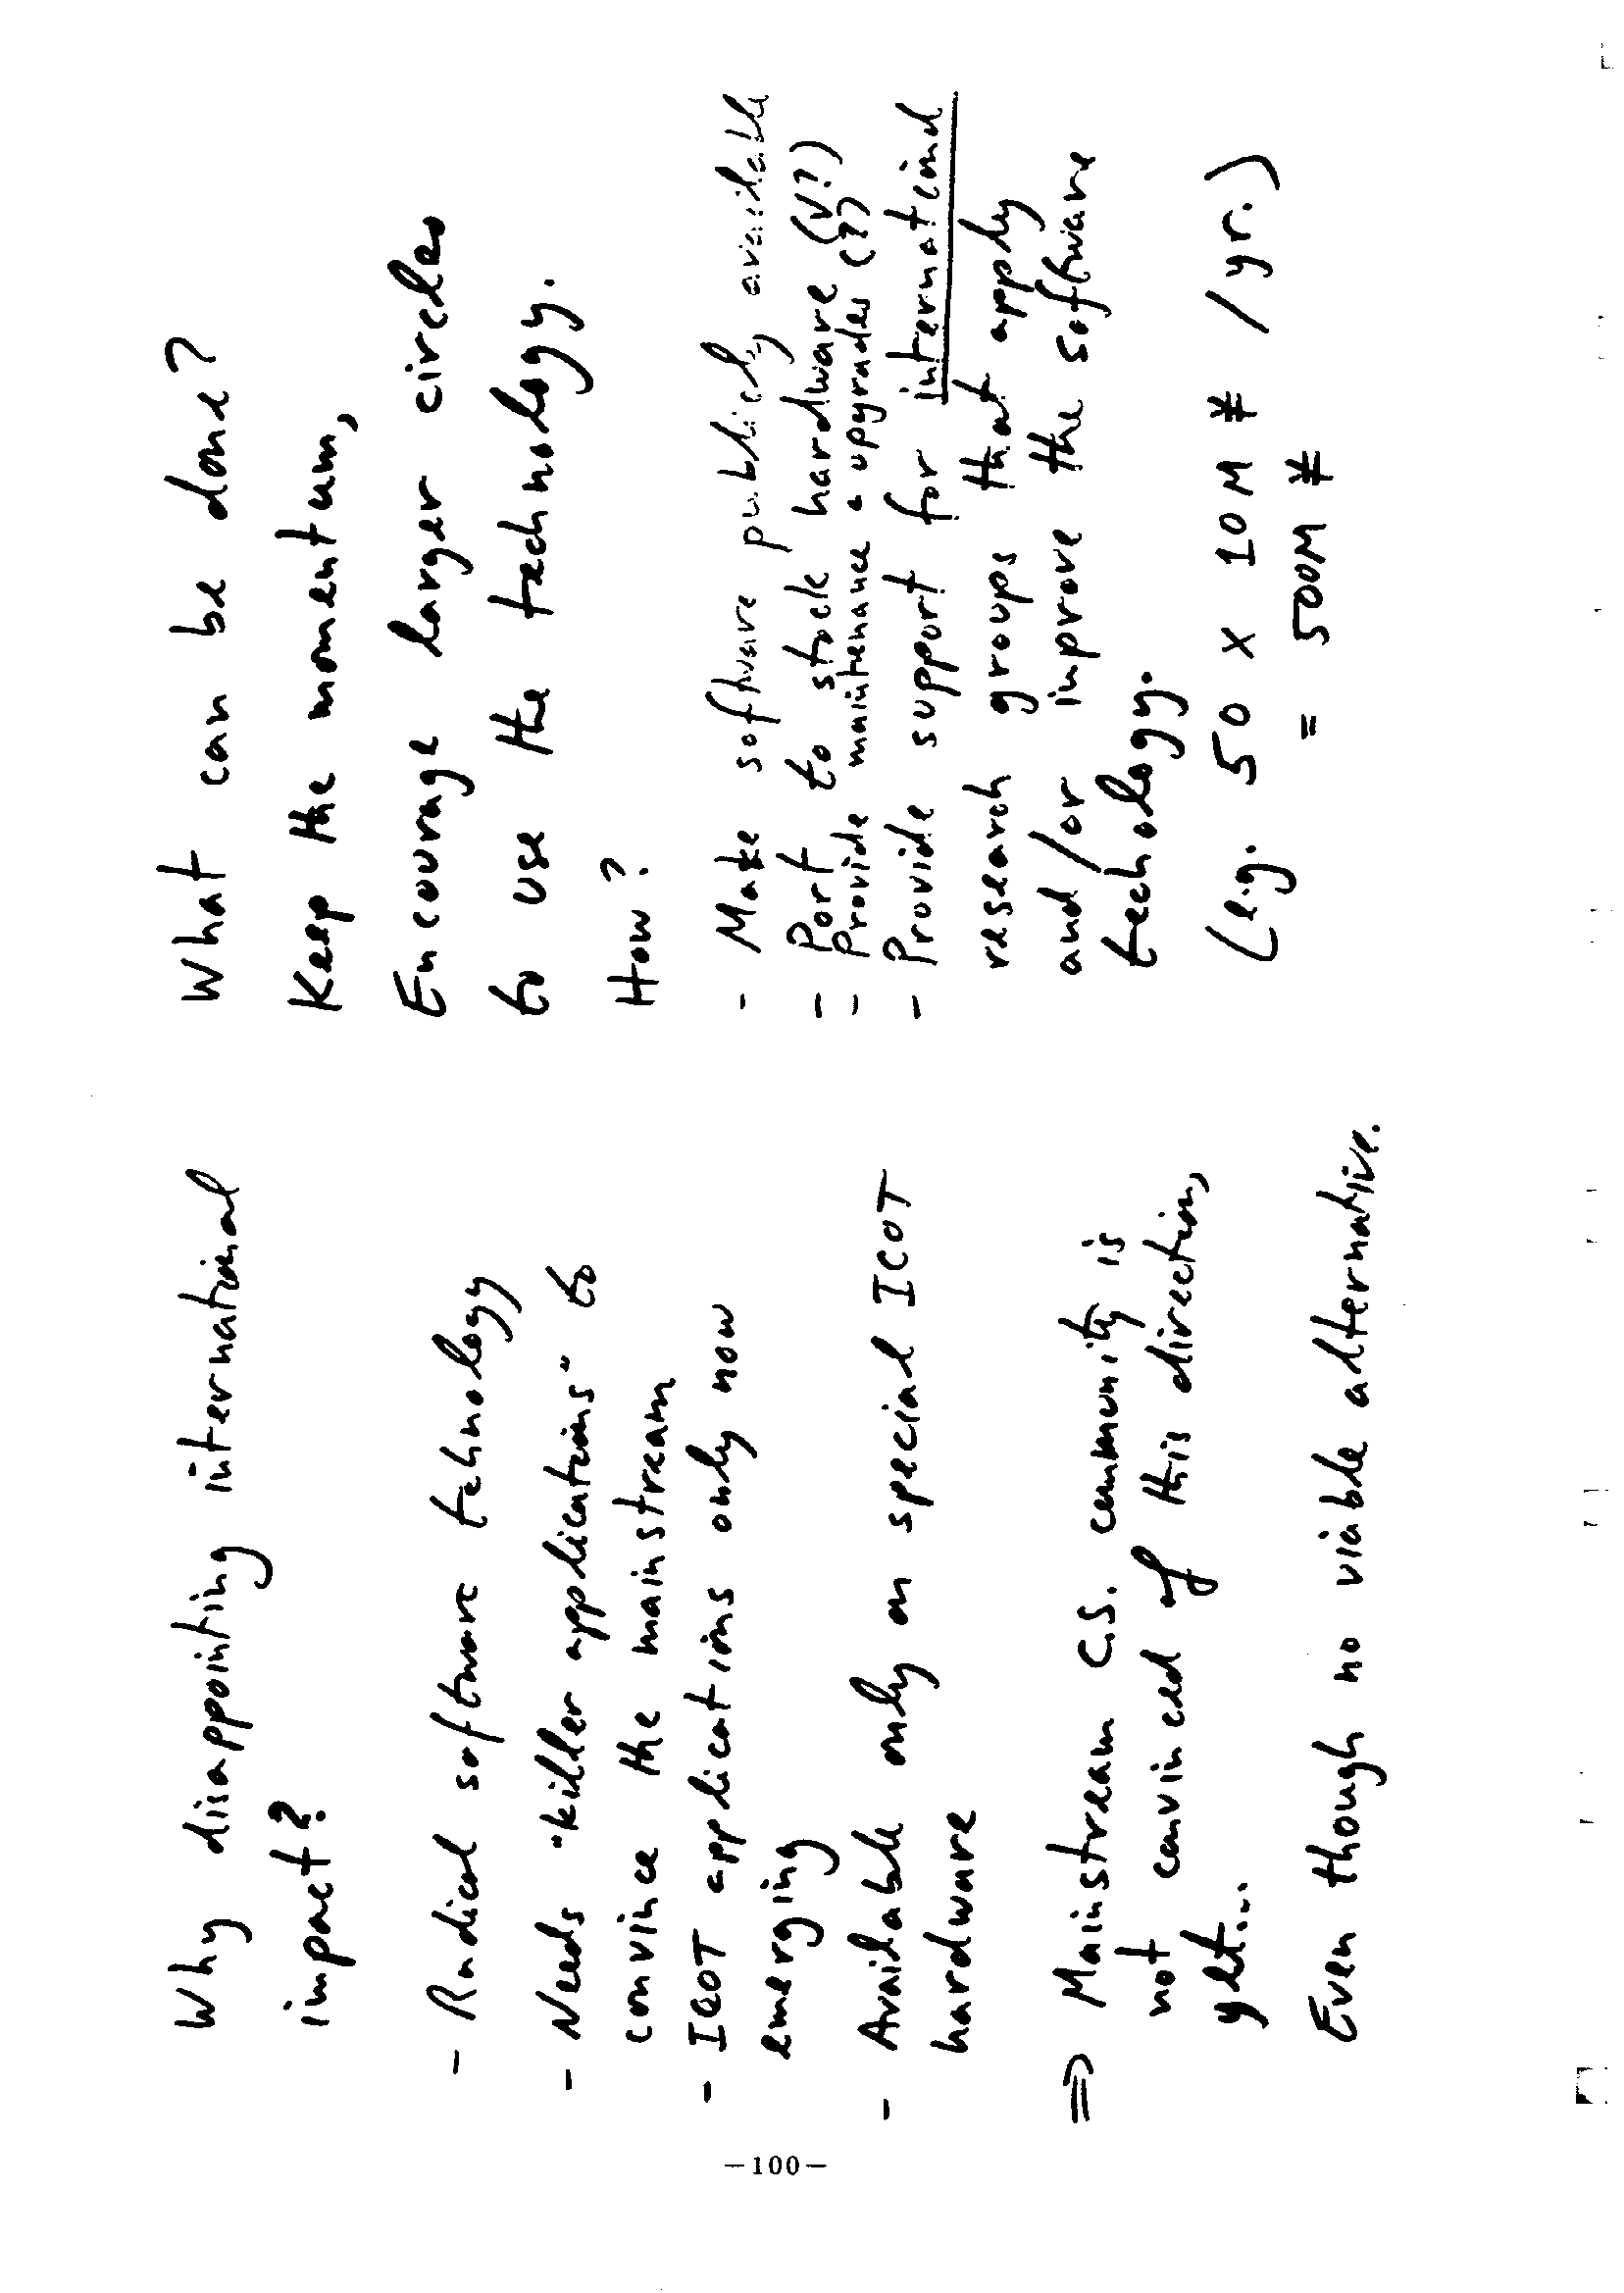 Why disappointing international
impact?
- Radical software technology
- Needs "killer applications" to
convince the mainstream
- ICOT applications only now
emerging
- Available only on special ICOT
hardware
⇒ Mainstream C.S. community is
not convinced of this direction,
yet...
Even though no viable alternative.
What can be done?
Keep the momentum,
Encourage larger circles
to use the technology.
How?
- Make software publicly available
- Port to stock hardware (V?)
- Provide maintenance & upgrades (?)
- Provide support for international
research groups that apply
and/or improve the software
technology.
(e.g. 50 x 10M ¥ / yr.)
= 500M ¥
—100—